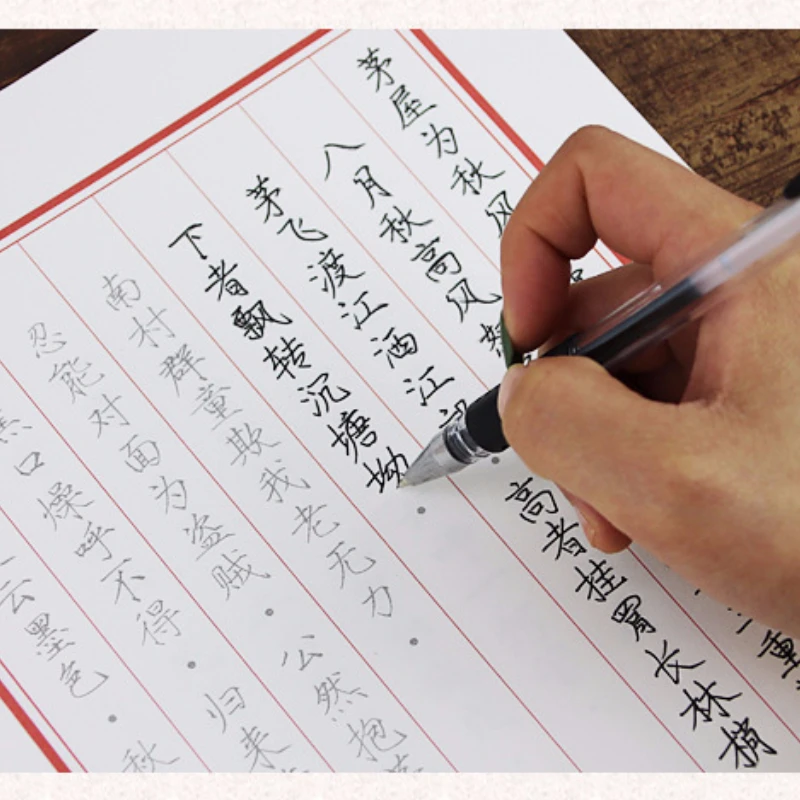 茅屋为秋风
八月秋高风怒 重
茅飞渡江洒江 高者挂罥长林梢
下者飘转沉塘坳
南村群童欺我老无力
忍能对面为盗贼 · 公然抱
口燥呼不得 · 归来
云墨色 · 秋